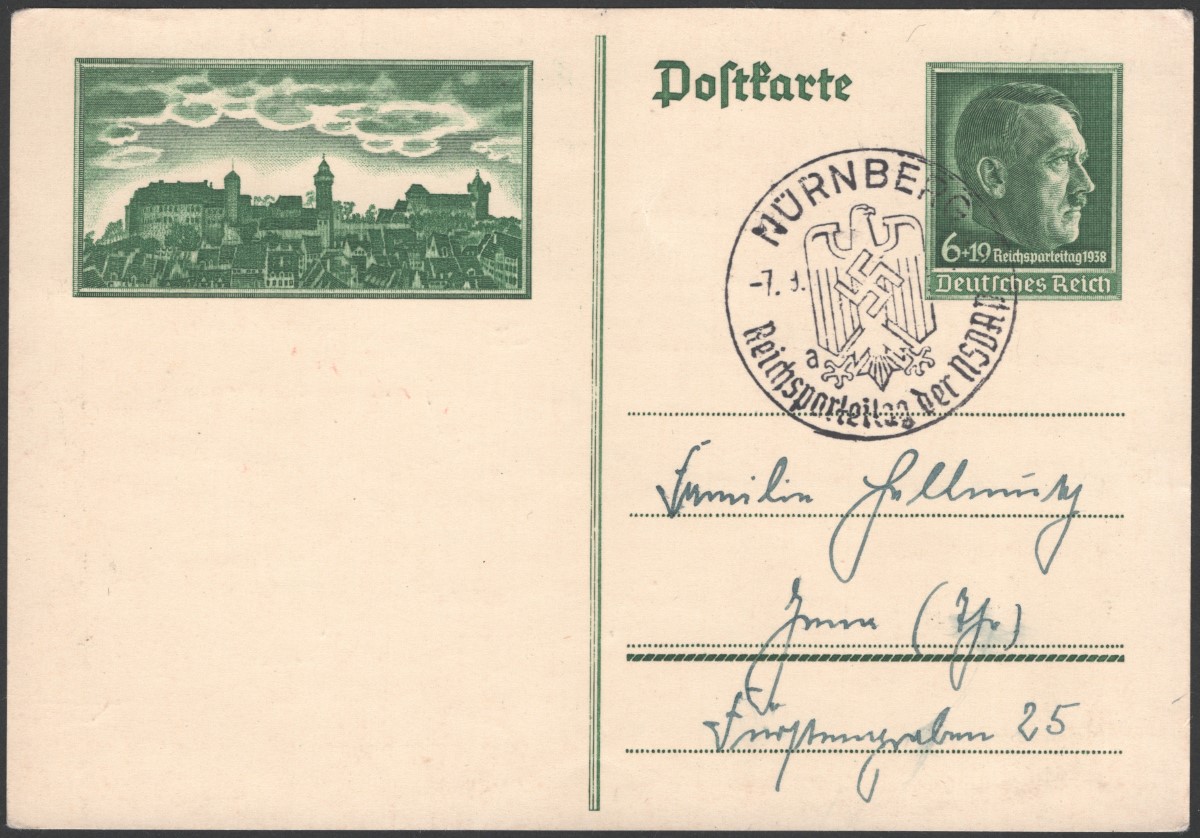 Postkarte
6+19 Reichsparteitag 1938
Deutsches Reich
NÜRNBERG
-7. 9.
a
Reichsparteitag der NSDAP
Familie Hellmuth
Jena (Thr)
Fürstengraben 25